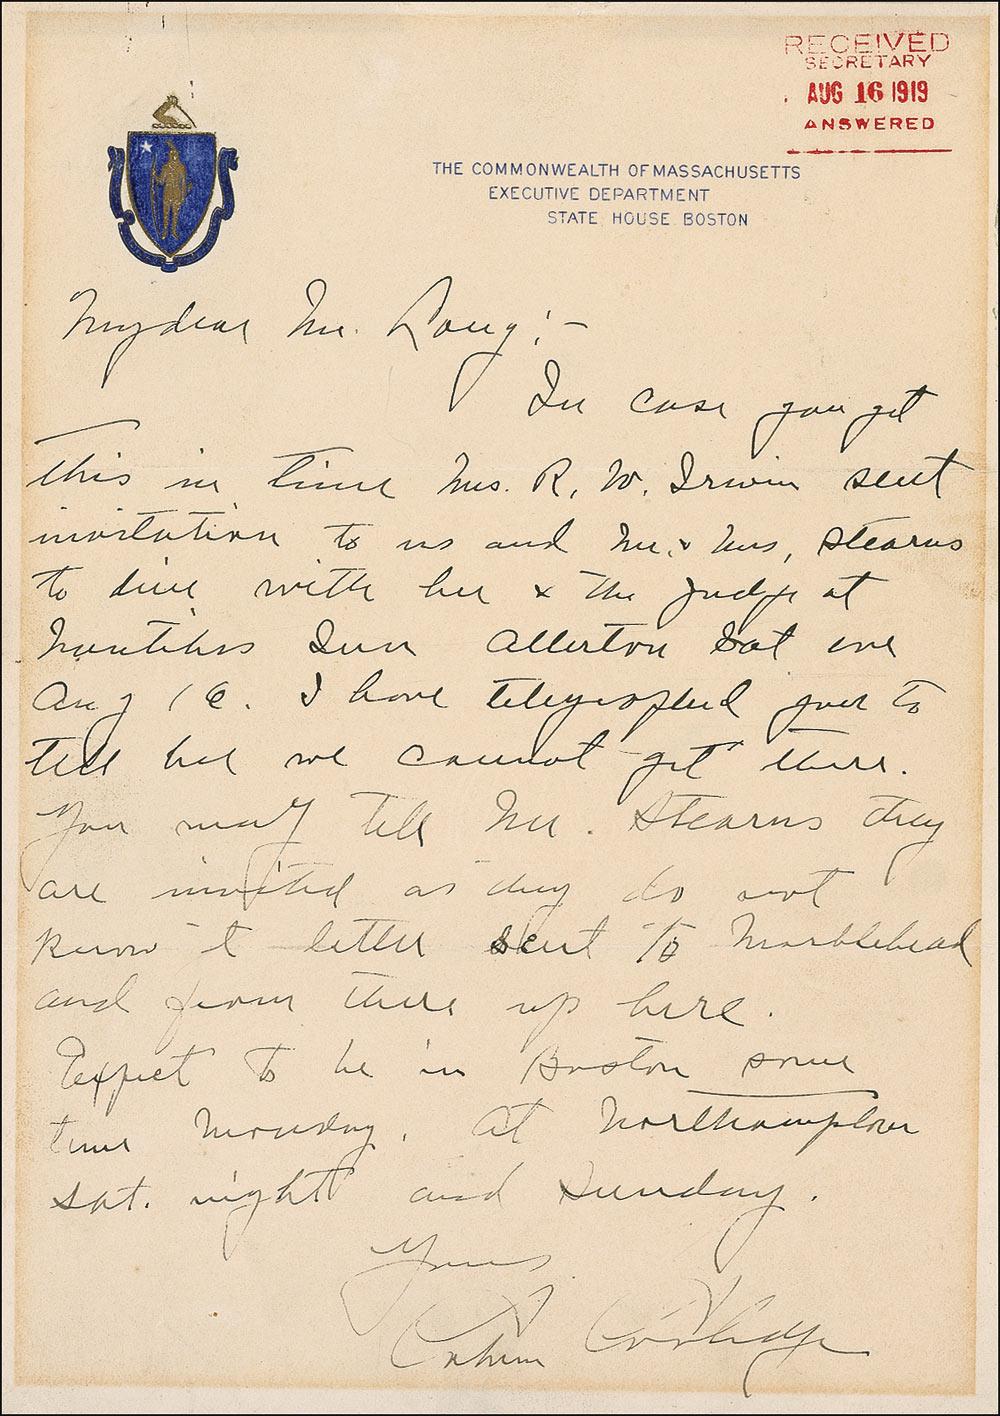 RECEIVED
SECRETARY
AUG 16 1919
ANSWERED
THE COMMONWEALTH OF MASSACHUSETTS
EXECUTIVE DEPARTMENT
STATE HOUSE BOSTON
My dear Mr. Long:-
In case you get
this in time Mrs. R. W. Irwin sent
invitation to us and Mr. & Mrs. Stearns
to dine with her & the Judge at
Nautilus Inn Allerton Sat eve
Aug 16. I have telegraphed you to
tell her we cannot get there.
You may tell Mr. Stearns they
are invited as they do not
know it letter sent to Marblehead
and from there up here.
Expect to be in Boston some
time Monday. At Northampton
sat. night and Sunday.
Yours
Calvin Coolidge